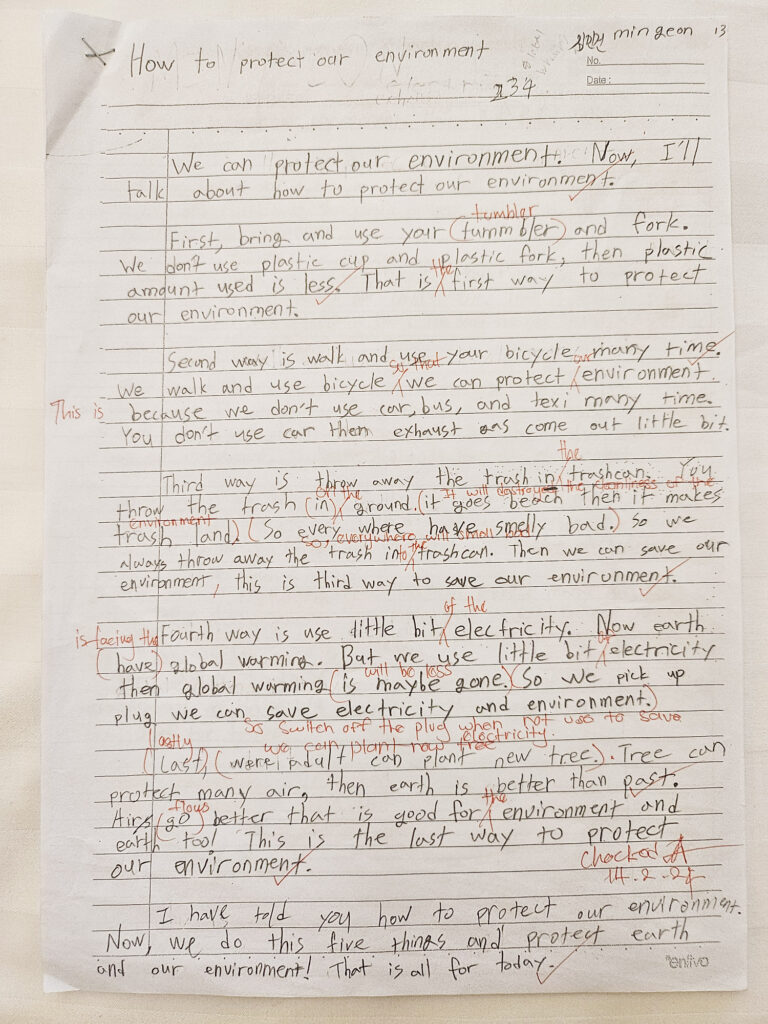 How to protect our environment
최민건 min geon 13
No.
Date :
234
We can protect our environment. Now, I'll
talk about how to protect our environment.
tumbler
First, bring and use your (tummbler) and fork.
We don't use plastic cup and plastic fork, then plastic
the
amount used is less. That is first way to protect
our environment.
Second way is walk and use your bicycle many time.
so that our
We walk and use bicycle we can protect environment.
This is because we don't use car, bus, and texi many time.
You don't use car them exhaust gas come out little bit.
the
Third way is throw away the trash in trashcan. You
off the It will destroyed the cleanliness of the
throw the trash (in) ground. (it goes beach then it makes
environment
trash land) (So every where have smelly bad.) So we
So, everywhere will smell bad
always throw away the trash into the trashcan. Then we can save our
environment, this is third way to save our environment.
of the
Fourth way is use little bit electricity. Now earth
is facing the of
(have) global warming. But we use little bit electricity
will be less
then global warming (is maybe gone.) (So we pick up
plug we can save electricity and environment.)
So switch off the plug when not use to save
electricity.
lastly we can plant new tree
(Last), (were adult can plant new tree.). Tree can
protect many air, then earth is better than past.
flows the
Airs (go) better that is good for environment and
earth too! This is the last way to protect
our environment.
Checked
14.2.24
I have told you how to protect our environment.
Now, we do this five things and protect earth
and our environment! That is all for today.
enfivo